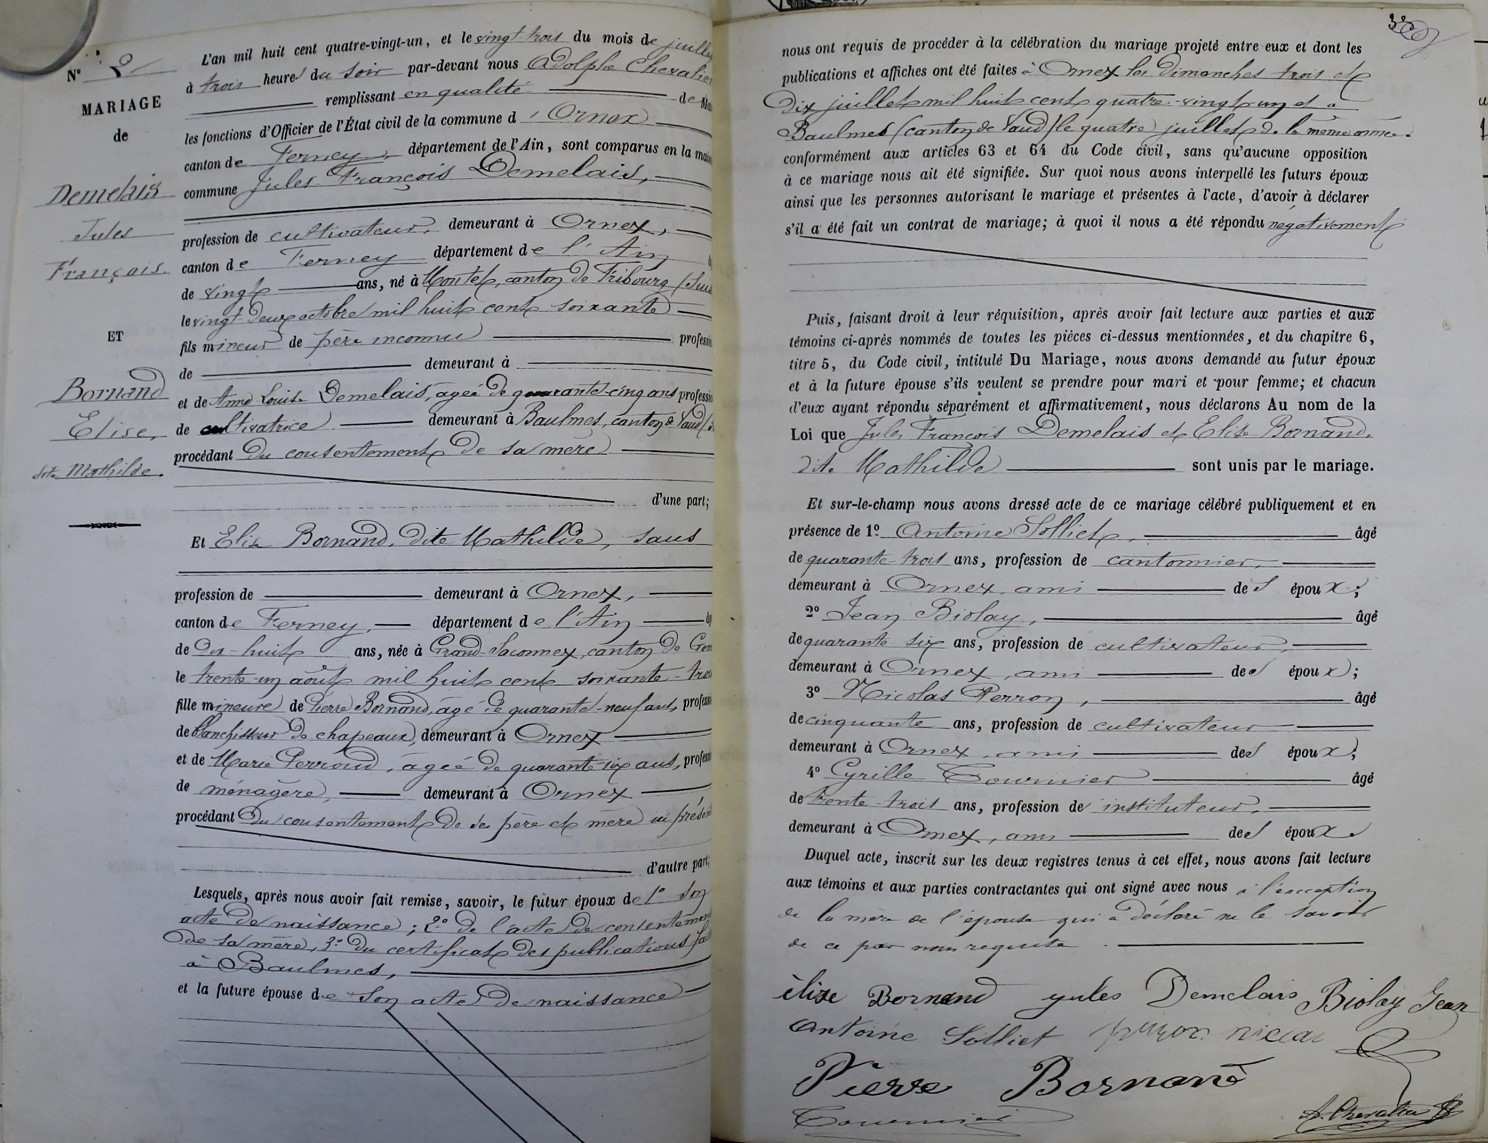 N° 2
MARIAGE
de
Demelais
Jules
François
ET
Bornand
Elise,
dite Mathilde
L'an mil huit cent quatre-vingt-un, et le vingt trois du mois de juillet
à trois heures du soir par-devant nous Adolphe Chevalier
remplissant en qualité de
les fonctions d'Officier de l'État civil de la commune d'Ornex
canton de Ferney, département de l'Ain, sont comparus en la
commune Jules François Demelais,
profession de cultivateur, demeurant à Ornex,
canton de Ferney département de l'Ain
de vingt ans, né à Montet, canton de Fribourg
le vingt deux octobre mil huit cent soixante
fils mineur de père inconnu
de demeurant à
et de Anne Louise Demelais, agée de quarante-cinq ans
de cultivatrice demeurant à Baulmes, canton de Vaud
procédant du consentement de sa mère
d'une part;
Et Elise Bornand, dite Mathilde, sans
profession de demeurant à Ornex,
canton de Ferney, département de l'Ain
de dix-huit ans, née à Grand-Saconnex, canton de
le trente un août mil huit cent soixante-trois
fille mineure de Pierre Bornand, agé de quarante-neuf ans,
de blanchisseur de chapeaux, demeurant à Ornex
et de Marie Perroud, agée de quarante six ans,
de ménagère, demeurant à Ornex
procédant du consentement de ses père et mère ici
d'autre part;
Lesquels, après nous avoir fait remise, savoir, le futur époux de 1° son
acte de naissance; 2° de l'acte de consentement
de sa mère, 3° du certificat des publications
à Baulmes,
et la future épouse de son acte de naissance
nous ont requis de procéder à la célébration du mariage projeté entre eux et dont les
publications et affiches ont été faites à Ornex les dimanches trois et
dix juillet mil huit cent quatre-vingt-un et à
Baulmes (canton de Vaud) le quatre juillet de la même année.
conformément aux articles 63 et 64 du Code civil, sans qu'aucune opposition
à ce mariage nous ait été signifiée. Sur quoi nous avons interpellé les futurs époux
ainsi que les personnes autorisant le mariage et présentes à l'acte, d'avoir à déclarer
s'il a été fait un contrat de mariage; à quoi il nous a été répondu négativement
Puis, faisant droit à leur réquisition, après avoir fait lecture aux parties et aux
témoins ci-après nommés de toutes les pièces ci-dessus mentionnées, et du chapitre 6,
titre 5, du Code civil, intitulé Du Mariage, nous avons demandé au futur époux
et à la future épouse s'ils veulent se prendre pour mari et pour femme; et chacun
d'eux ayant répondu séparément et affirmativement, nous déclarons Au nom de la
Loi que Jules François Demelais et Elise Bornand,
dite Mathilde sont unis par le mariage.
Et sur-le-champ nous avons dressé acte de ce mariage célébré publiquement et en
présence de 1° Antoine Solliet, âgé
de quarante trois ans, profession de cantonnier,
demeurant à Ornex, ami des époux;
2° Jean Biolay, âgé
de quarante six ans, profession de cultivateur,
demeurant à Ornex, ami des époux;
3° Nicolas Perron, âgé
de cinquante ans, profession de cultivateur
demeurant à Ornex, ami des époux;
4° Cyrille Tournier âgé
de trente-trois ans, profession de instituteur,
demeurant à Ornex, ami des époux
Duquel acte, inscrit sur les deux registres tenus à cet effet, nous avons fait lecture
aux témoins et aux parties contractantes qui ont signé avec nous à l'exception
de la mère de l'épouse qui a déclaré ne le savoir
de ce par nous requise.
élise Bornand jules Demelais Biolay Jean
Antoine Solliet
Pierre Bornand
Tournier A. Chevalier